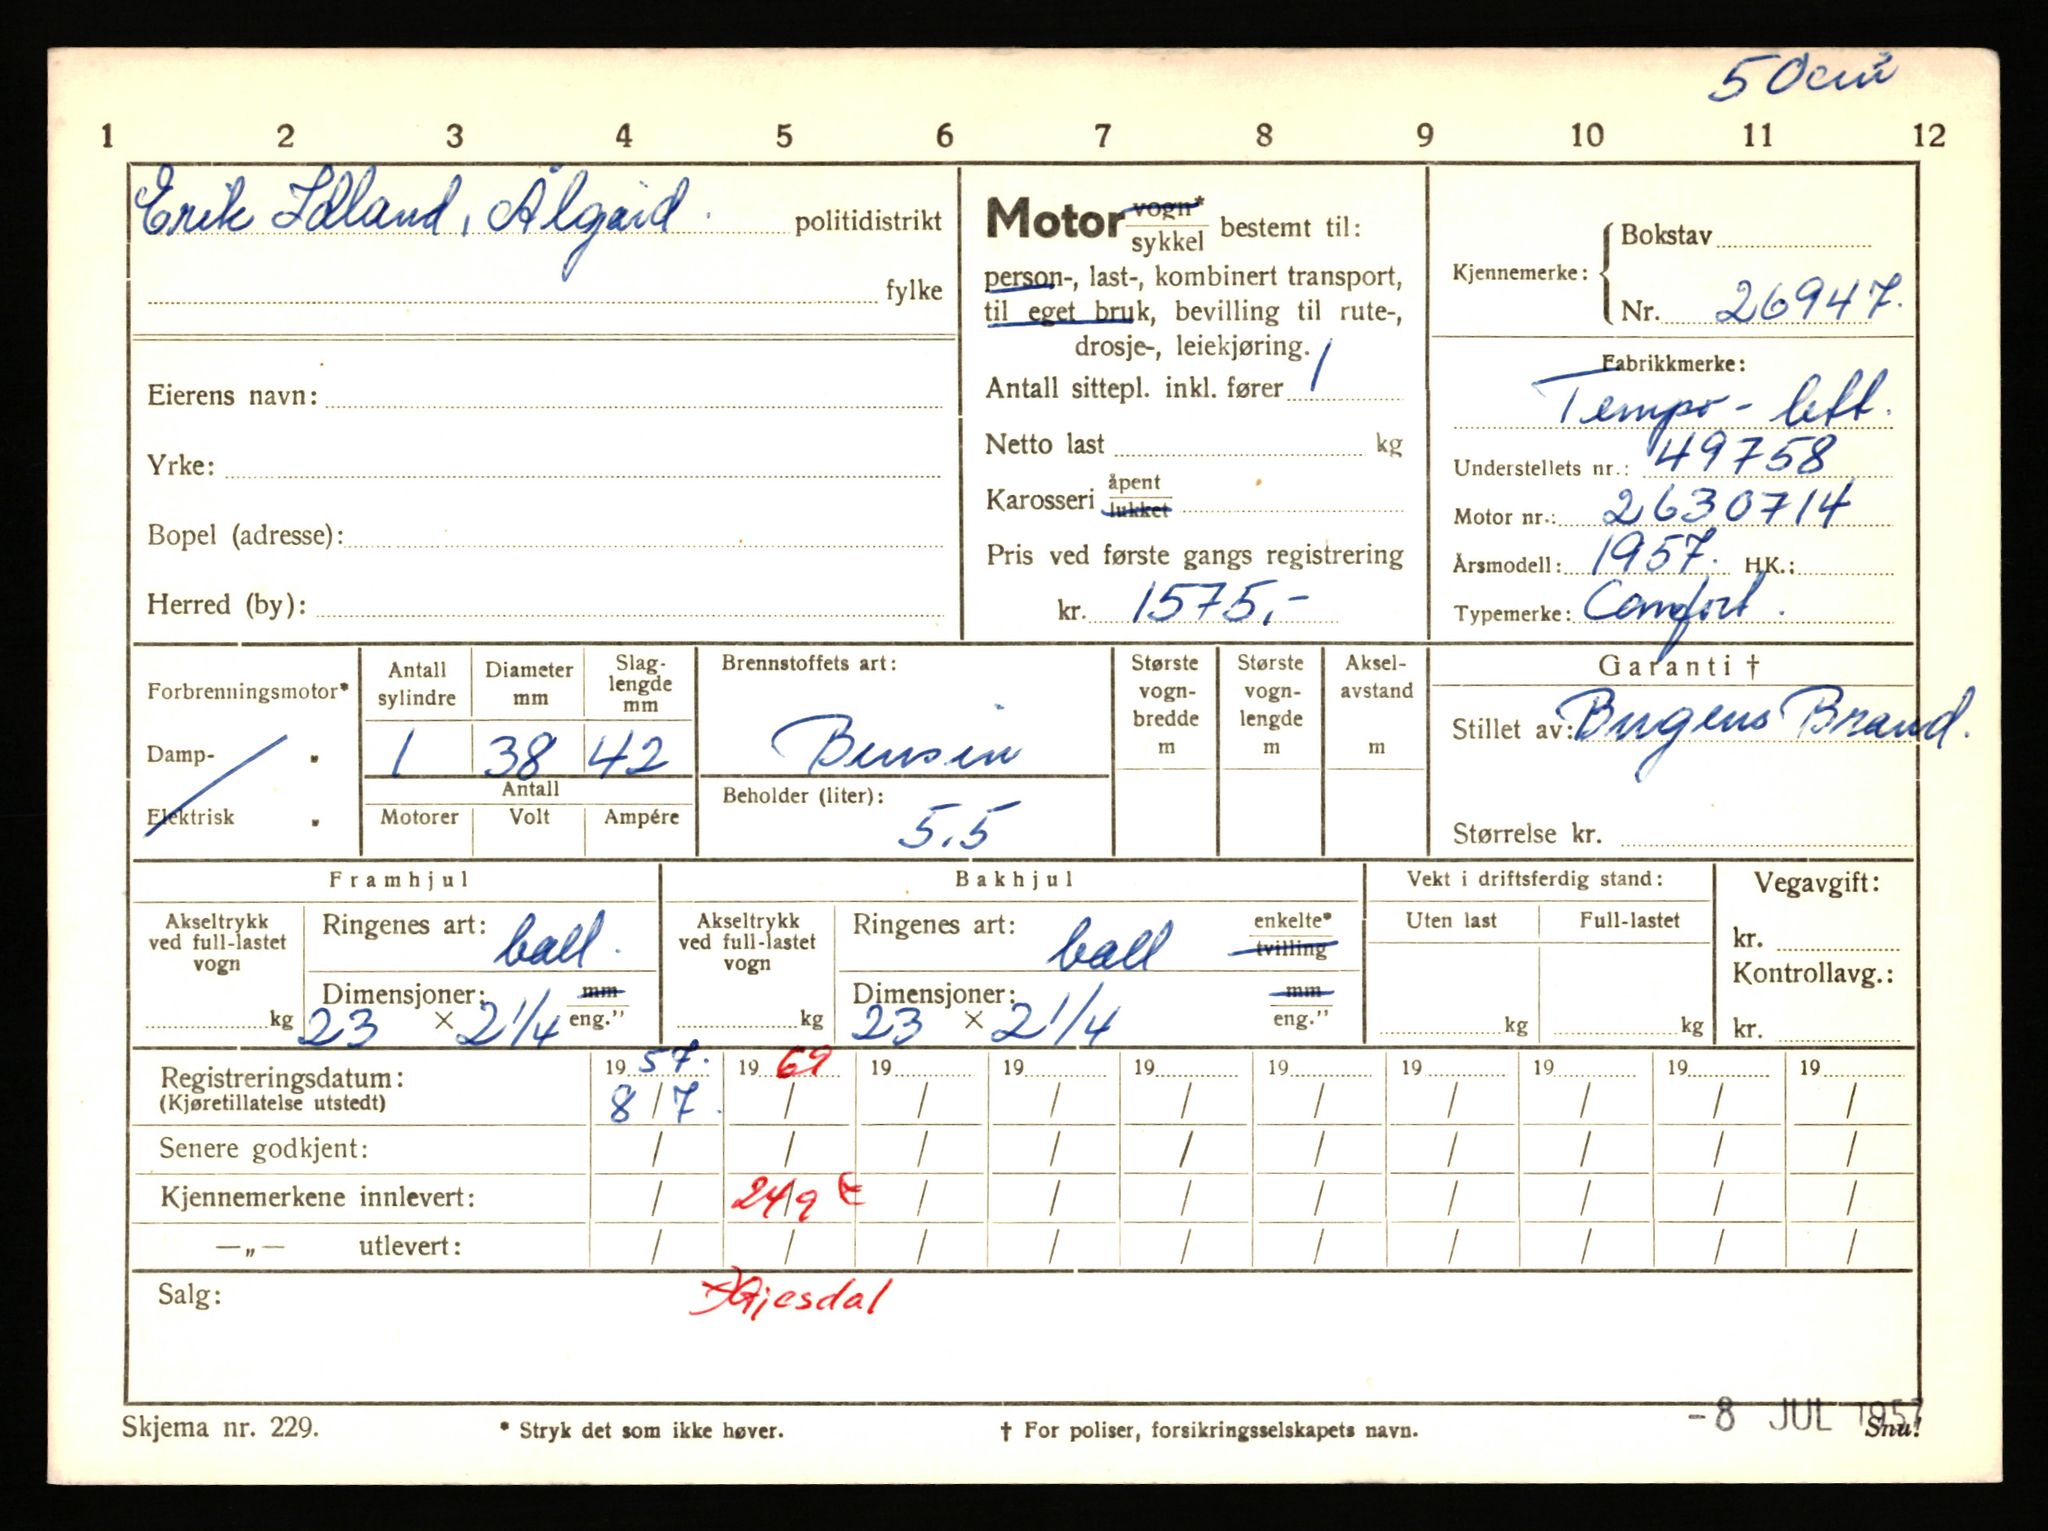 50cm³
1 2 3 4 5 6 7 8 9 10 11 12
Erik Idland, Ålgård. politidistrikt
fylke
Eierens navn:
Yrke:
Bopel (adresse):
Herred (by):
Motor vogn*
sykkel bestemt til:
person-, last-, kombinert transport,
til eget bruk, bevilling til rute-,
drosje-, leiekjøring.
Antall sittepl. inkl. fører 1
Netto last kg
Karosseri åpent
lukket
Pris ved første gangs registrering
kr. 1575,-
Kjennemerke: Bokstav
Nr. 26947.
Fabrikkmerke:
Tempo - lett.
Understellets nr.: 49758
Motor nr.: 2630714
Årsmodell: 1957. HK.:
Typemerke: Comfort.
Forbrenningsmotor*
Damp- "
Elektrisk "
Antall sylindre
Diameter mm
Slag-lengde mm
1 38 42
Antall
Motorer Volt Ampére
Brennstoffets art:
Bensin
Beholder (liter):
5,5
Største vogn-bredde m
Største vogn-lengde m
Aksel-avstand m
Garanti †
Stillet av: Brand.
Størrelse kr.
Framhjul
Akseltrykk ved full-lastet vogn
kg
Ringenes art: ball.
Dimensjoner: mm
23 × 2 1/4 eng."
Bakhjul
Akseltrykk ved full-lastet vogn
kg
Ringenes art: ball enkelte*
tvilling
Dimensjoner: mm
23 × 2 1/4 eng."
Vekt i driftsferdig stand:
Uten last Full-lastet
kg kg
Vegavgift:
kr.
Kontrollavg.:
kr.
Registreringsdatum: 19 57. 19 69 19 19 19 19 19 19 19 19
(Kjøretillatelse utstedt) 8/7. / / / / / / / / /
Senere godkjent: / / / / / / / / / /
Kjennemerkene innlevert: / 24/9 / / / / / / / /
—„— utlevert: / / / / / / / / / /
Salg: Gjesdal
-8 JUL 1957
Skjema nr. 229. * Stryk det som ikke høver. † For poliser, forsikringsselskapets navn. Snu!